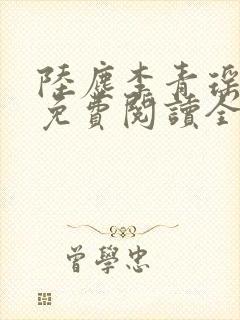 陸塵李青瑤
免費閱讀全
曾學忠